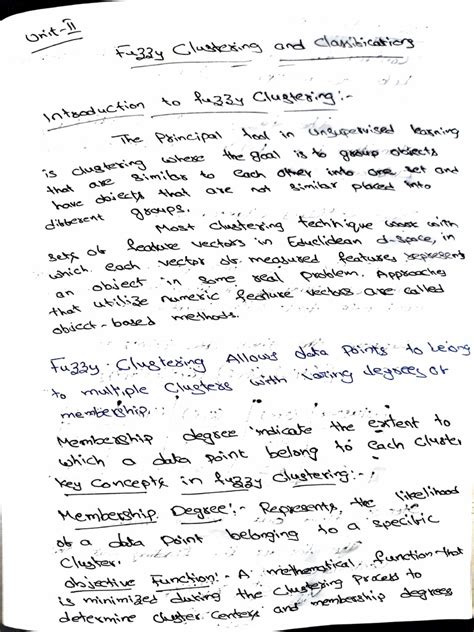 Unit-II
Fuzzy Clustering and Classifications
Introduction to fuzzy Clustering:-
The Principal tool in unsupervised learning
is clustering where the goal is to group objects
that are similar to each other into one set and
have objects that are not similar placed into
different groups.
Most clustering technique work with
sets of feature vectors in Euclidean d-space, in
which each vector of measured features represents
an object in some real problem. Approaches
that utilize numeric feature vectors are called
object-based methods.
Fuzzy Clustering Allows data Points to belong
to multiple Clusters with degrees of
membership.
Membership degree indicate the extent to
which a data point belong to each Cluster
Key Concepts in fuzzy Clustering:-
Membership Degree:- Represents the likelihood
of a data Point belonging to a specific
Cluster.
Objective Function:- A mathematical function that
is minimized during the Clustering Process to
determine cluster Centers and membership degrees